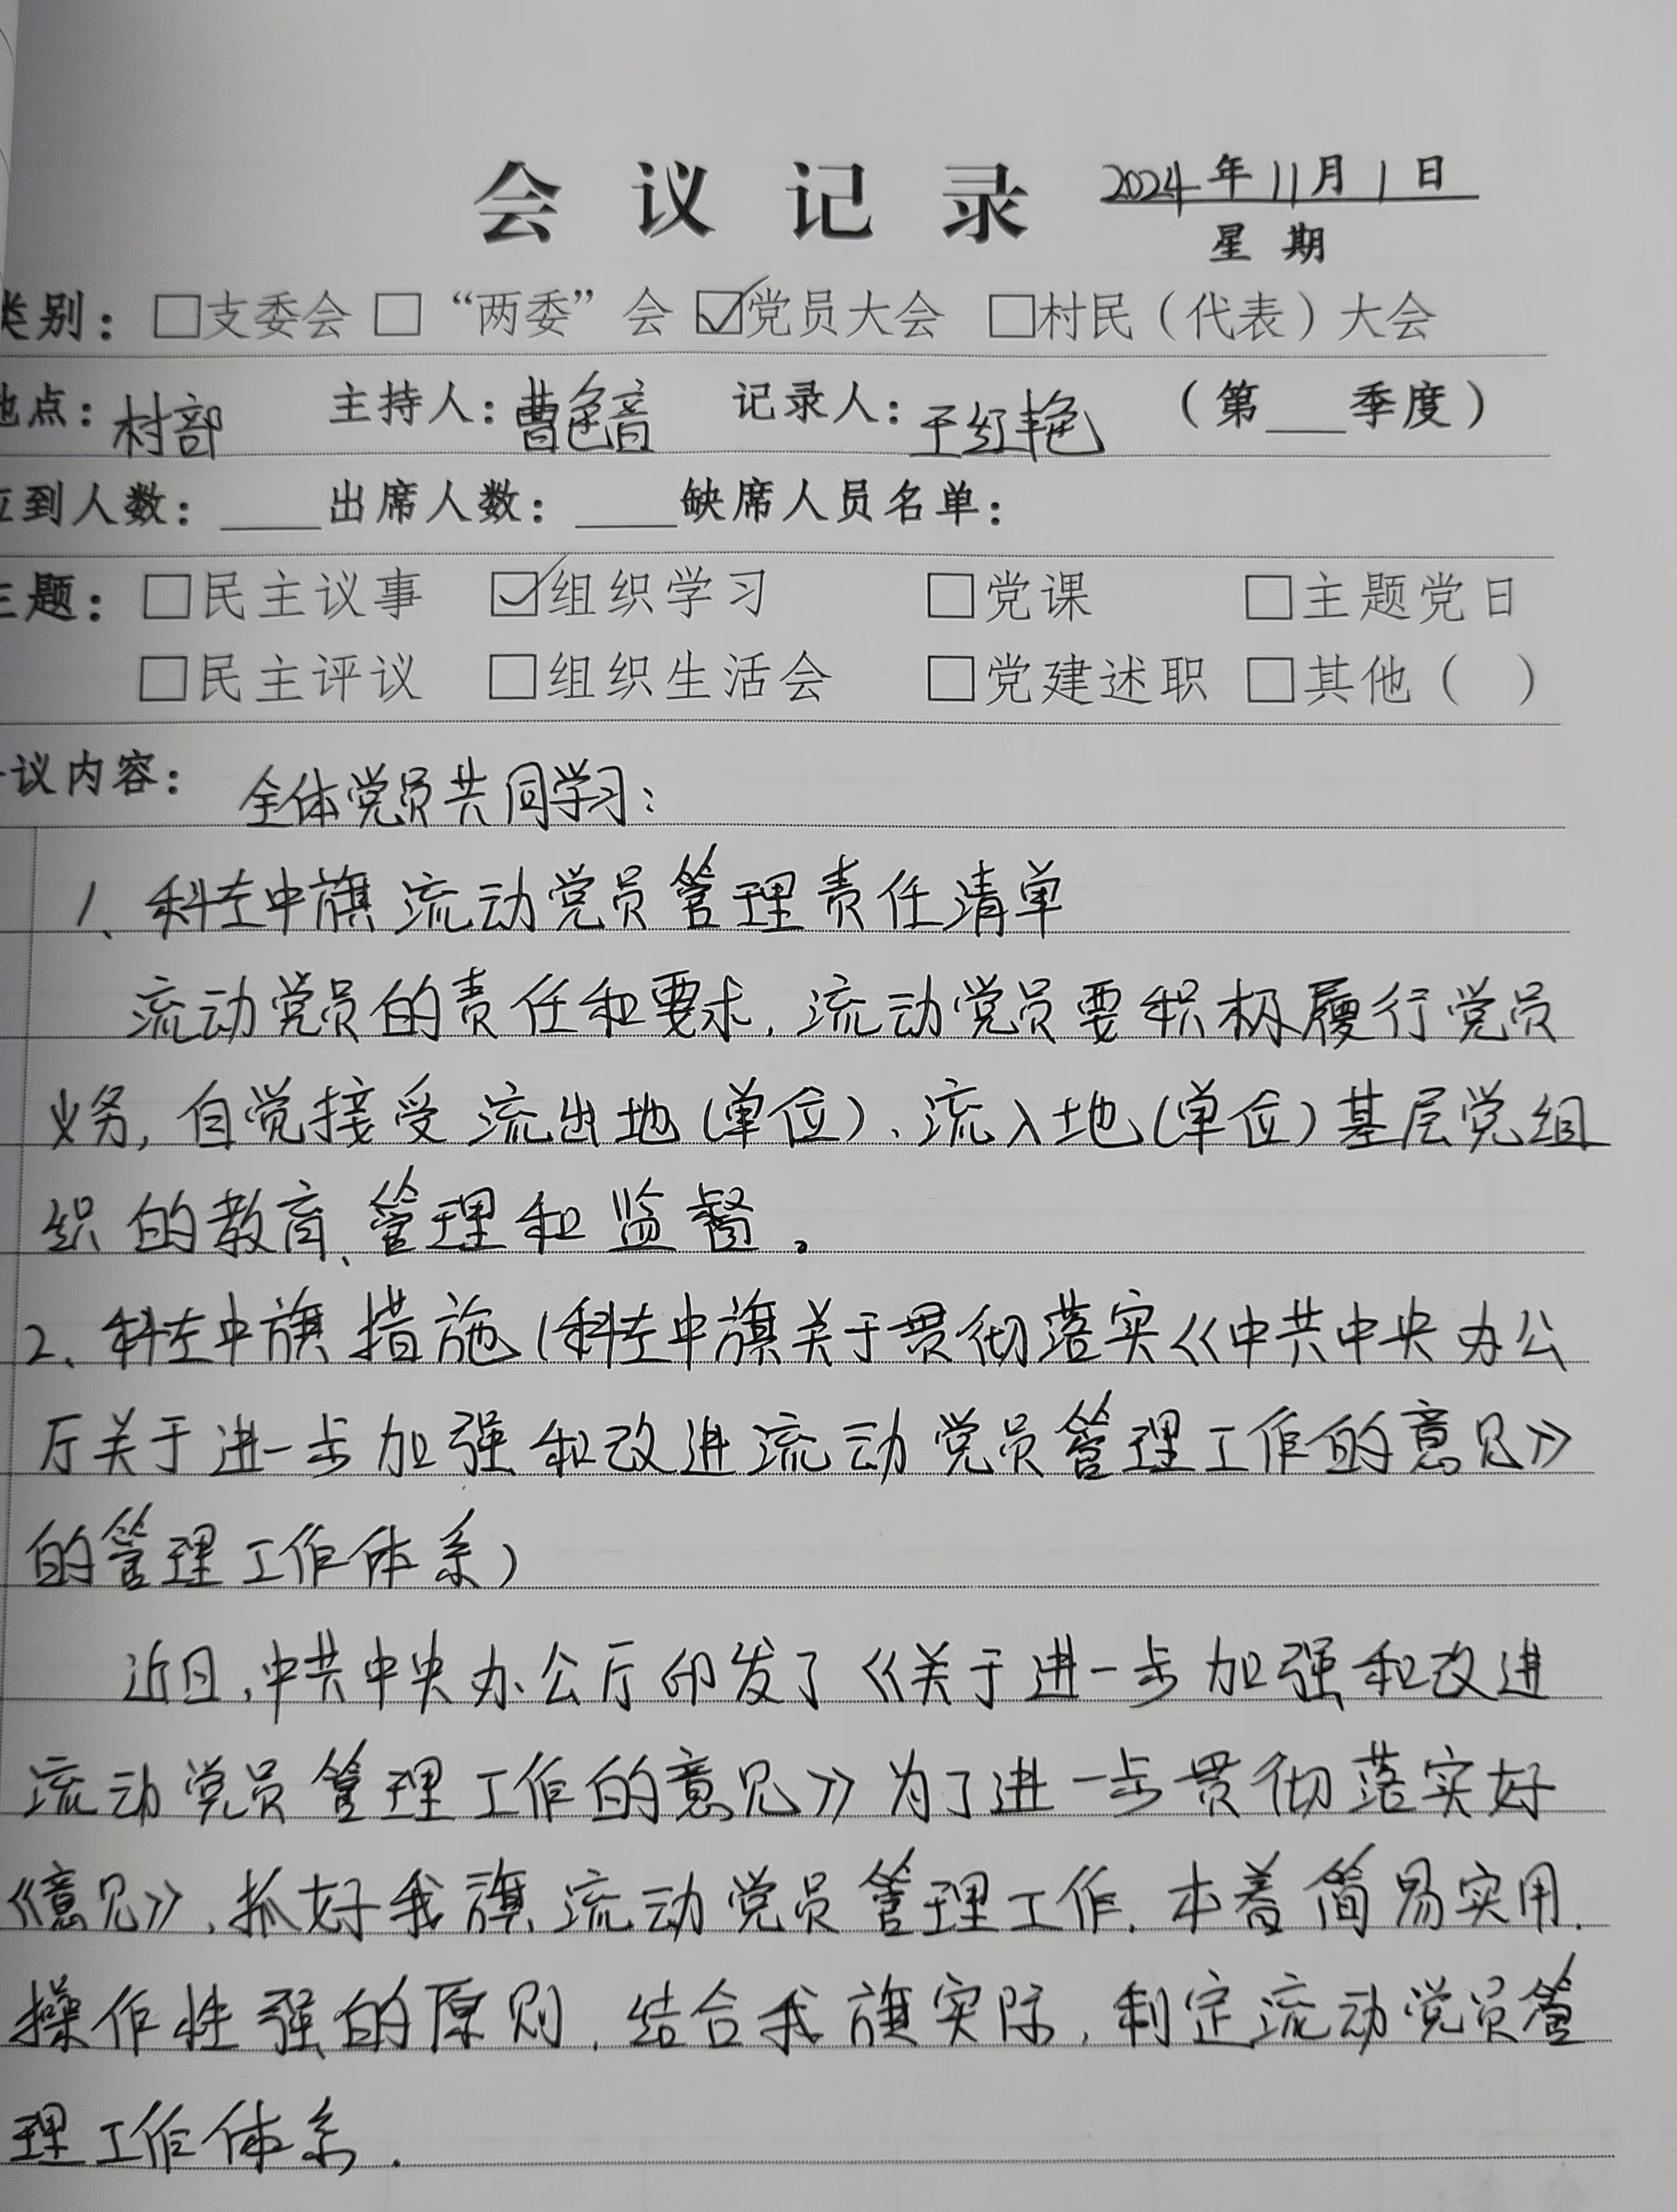 会议记录 2024年11月1日
星期
类别：□支委会 □“两委”会 ☑党员大会 □村民（代表）大会
地点：村部 主持人：曹色音 记录人：于红艳 （第___季度）
应到人数：____出席人数：____缺席人员名单：
主题：□民主议事 ☑组织学习 □党课 □主题党日
□民主评议 □组织生活会 □党建述职 □其他（ ）
会议内容：全体党员共同学习：
1、科左中旗流动党员管理责任清单
流动党员的责任和要求，流动党员要积极履行党员
义务，自觉接受流出地（单位）、流入地（单位）基层党组
织的教育、管理和监督。
2、科左中旗措施（科左中旗关于贯彻落实《中共中央办公
厅关于进一步加强和改进流动党员管理工作的意见》
的管理工作体系）
近日，中共中央办公厅印发了《关于进一步加强和改进
流动党员管理工作的意见》为了进一步贯彻落实好
《意见》，抓好我旗流动党员管理工作，本着简易实用，
操作性强的原则，结合我旗实际，制定流动党员管
理工作体系.